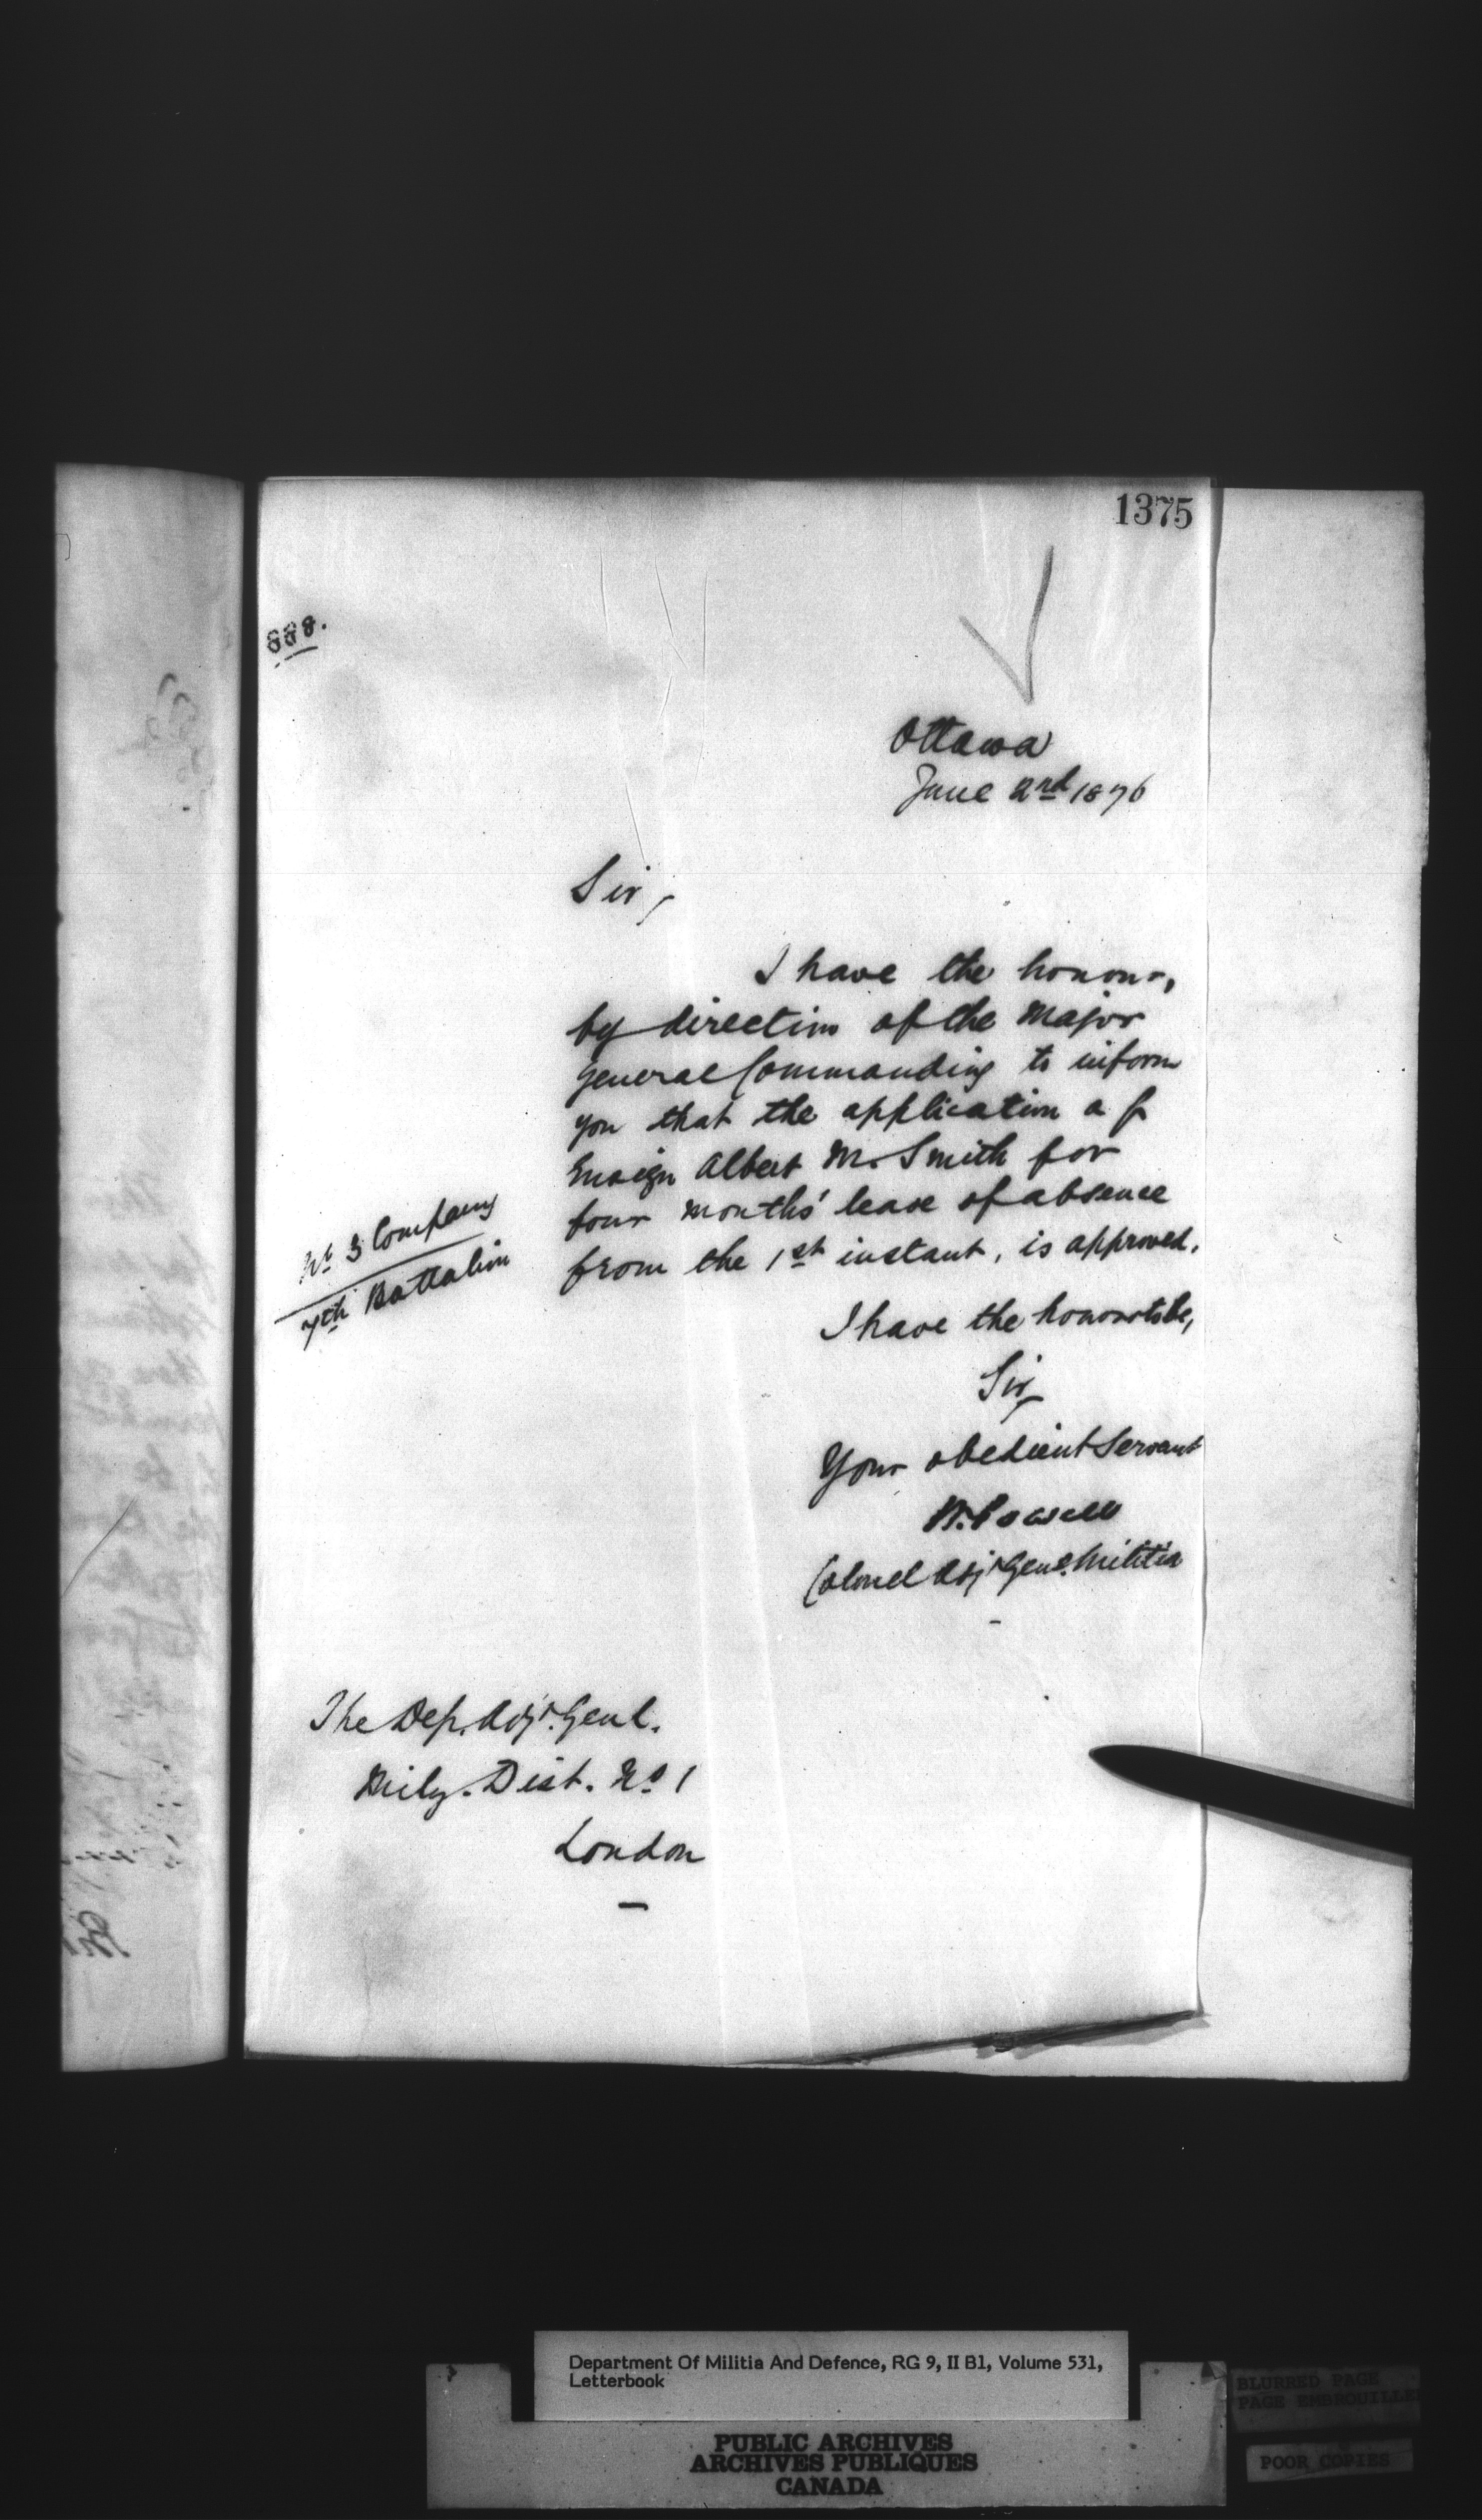 1375
888.
Ottawa
June 2nd 1876
Sir,
I have the honour,
by direction of the Major
General Commanding to inform
you that the application of
Ensign Albert M. Smith for
four months' leave of absence
from the 1st instant, is approved.
No 3 Company
7th Battalion
I have the honour to be,
Sir,
Your obedient Servant
W. Powell
Colonel Adjt Genl. Militia
The Dep. Adjt. Genl.
Mily. Dist. No 1
London
Department Of Militia And Defence, RG 9, II B1, Volume 531,
Letterbook
PUBLIC ARCHIVES
ARCHIVES PUBLIQUES
CANADA
BLURRED PAGE
PAGE EMBROUILLE
POOR COPIES